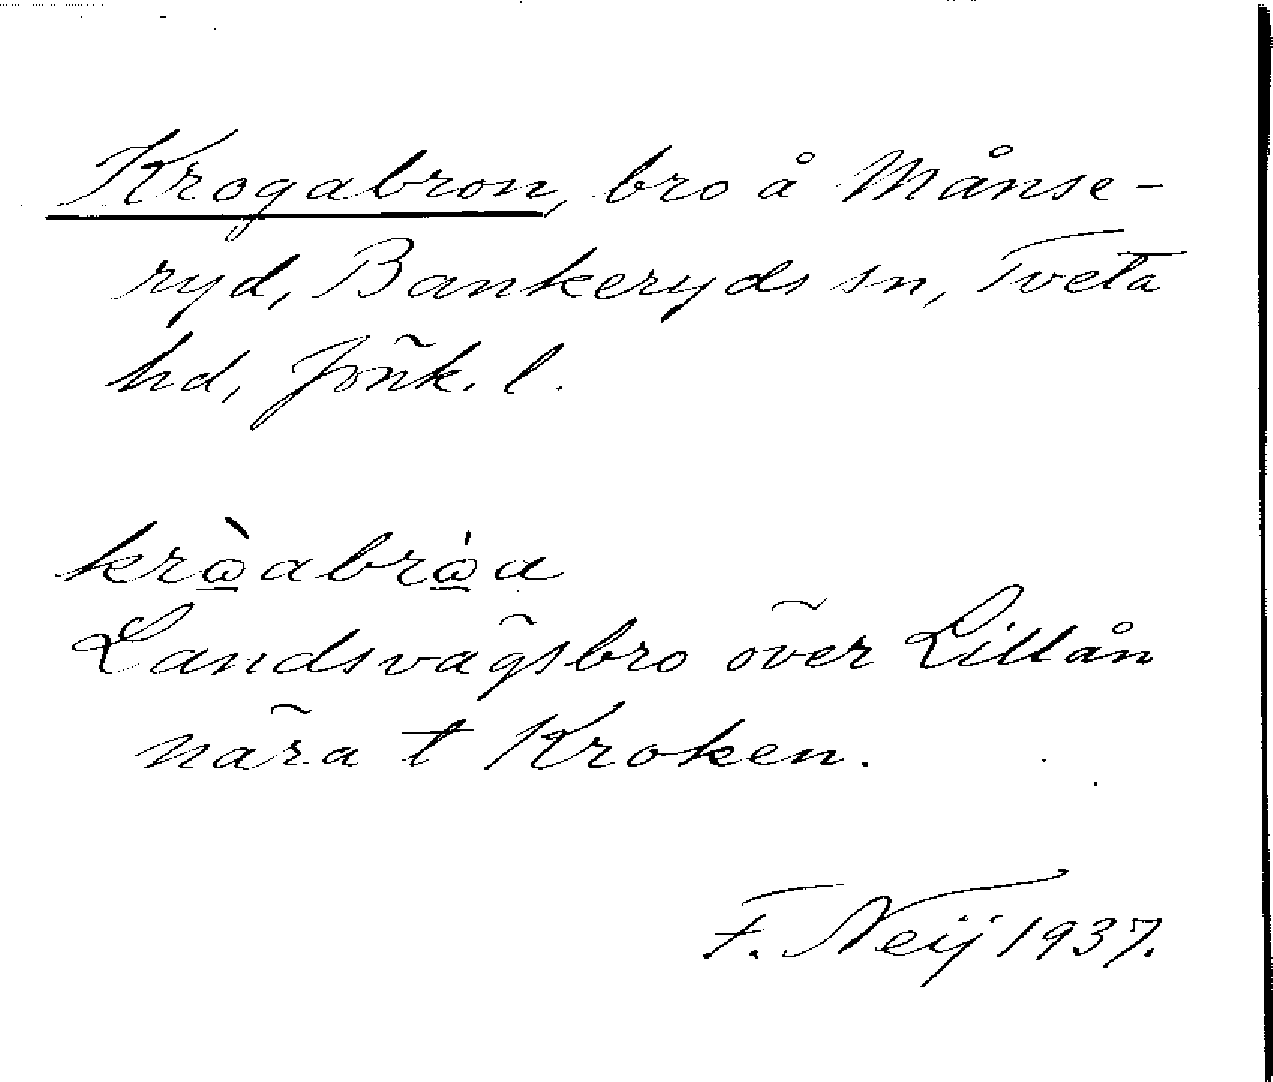 Krogabron, bro å Månse-
ryd, Bankeryds sn, Tveta
hd, Jönk. l.
krὼ̲abrω̲̇a
Landsvägsbro över Lillån
nära t Kroken.
F. Neij 1937.